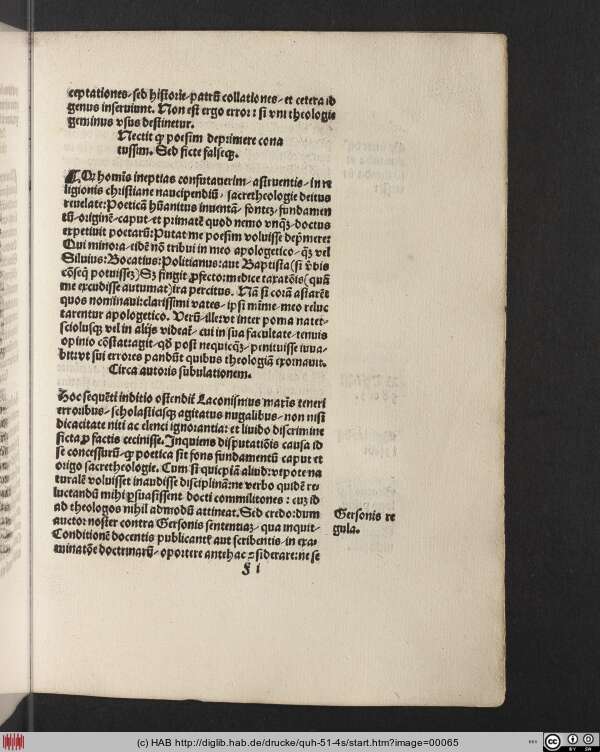 ceptationes/sed historie/patrũ collationes/et cetera id
genus inseruiunt. Non est ergo error: si vni theologie
geminus vsus destinetur.
Nectit ꝙ poesim deprimere cona
tussim. Sed ficte falseqꝫ.
OR homĩs ineptias confutauerim/astruentis/in re
ligionis christiane naucipendiũ/sacretheologie deitus
reuelate: Poeticã hũanitus inuentã/fontez/fundamen
tũ/originẽ/caput/et primatẽ quod nemo vnqꝫ/doctus
expetiuit poetarũ: Putat me poesim voluisse depͥmere:
Qui minora/eidẽ nõ tribui in meo apologetico/qꝫ vel
Siluius: Bocatius: Politianus: aut Baptista (si vͥbis
cõseqͥ potuissez) Sꝫ fingit ꝓfecto: medice taxatõis (quã
me excudisse autumat) ira percitus. Nã si corã astarẽt
quos nominaui: clarissimi vates/ipsi mĩme/meo reluc
tarentur apologetico. Verũ/ille: vt inter poma natet/
sciolusqꝫ vel in alijs videat̃/cui in sua facultate/tenuis
opinio cõstat: agit/qd̕ post nequicqꝫ/penituisse iuua/
bit: vt sui errores pandũt quibus theologiã exornauit.
Circa autoris subulationem.
Hoc sequẽti inditio ostendit̃ Laconismus matris teneri
erroribus/scholasticisqꝫ agitatus nugalibus/non nisi
dicacitate niti ac elenci ignorantia: et liuido discrimine
ficta ꝓ factis cecinisse. Inquiens disputatiõis causa id
se concessurũ/ꝙ poetica sit fons fundamentũ caput et
origo sacretheologie. Cum si quicpiã aliud: vtpote na
turalẽ voluisset inaudisse disciplinã: ne verbo quidẽ re
luctandũ mihi ꝑsuasissent docti commilitones: cuz id
ad theologos nihil admodũ attineat. Sed credo: dum
auctor noster contra Gersonis sententiaz/qua inquit/
Conditionẽ docentis publicantẽ aut scribentis/in exa/
minatõe doctrinarũ/oportere antehac ꝯsiderare: ne se
Gersonis re
gula.
§ i
(c) HAB http://diglib.hab.de/drucke/quh-51-4s/start.htm?image=00065